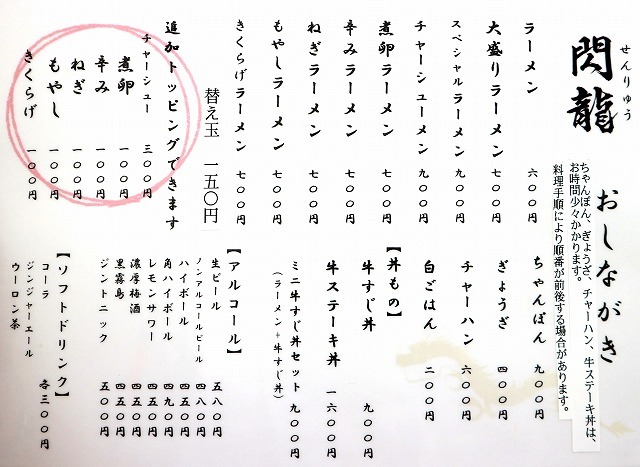 せんりゅう
閃龍
おしながき
ちゃんぽん、ぎょうざ、チャーハン、牛ステーキ丼は、
お時間少々かかります。
料理手順により順番が前後する場合があります。
ラーメン 六〇〇円
大盛りラーメン 七〇〇円
スペシャルラーメン 九〇〇円
チャーシューメン 九〇〇円
煮卵ラーメン 七〇〇円
辛みラーメン 七〇〇円
ねぎラーメン 七〇〇円
もやしラーメン 七〇〇円
きくらげラーメン 七〇〇円
替え玉 一五〇円
追加トッピングできます
チャーシュー 三〇〇円
煮卵 一〇〇円
辛み 一〇〇円
ねぎ 一〇〇円
もやし 一〇〇円
きくらげ 一〇〇円
ちゃんぽん 九〇〇円
ぎょうざ 四〇〇円
チャーハン 六〇〇円
白ごはん 二〇〇円
【丼もの】
牛すじ丼 九〇〇円
牛ステーキ丼 一六〇〇円
ミニ牛すじ丼セット 九〇〇円
（ラーメン＋牛すじ丼）
【アルコール】
生ビール 五八〇円
ノンアルコールビール 四八〇円
ハイボール 四五〇円
角ハイボール 四九〇円
レモンサワー 四五〇円
濃厚梅酒 四五〇円
黒霧島 四五〇円
ジントニック 五〇〇円
【ソフトドリンク】
コーラ 各三〇〇円
ジンジャーエール
ウーロン茶